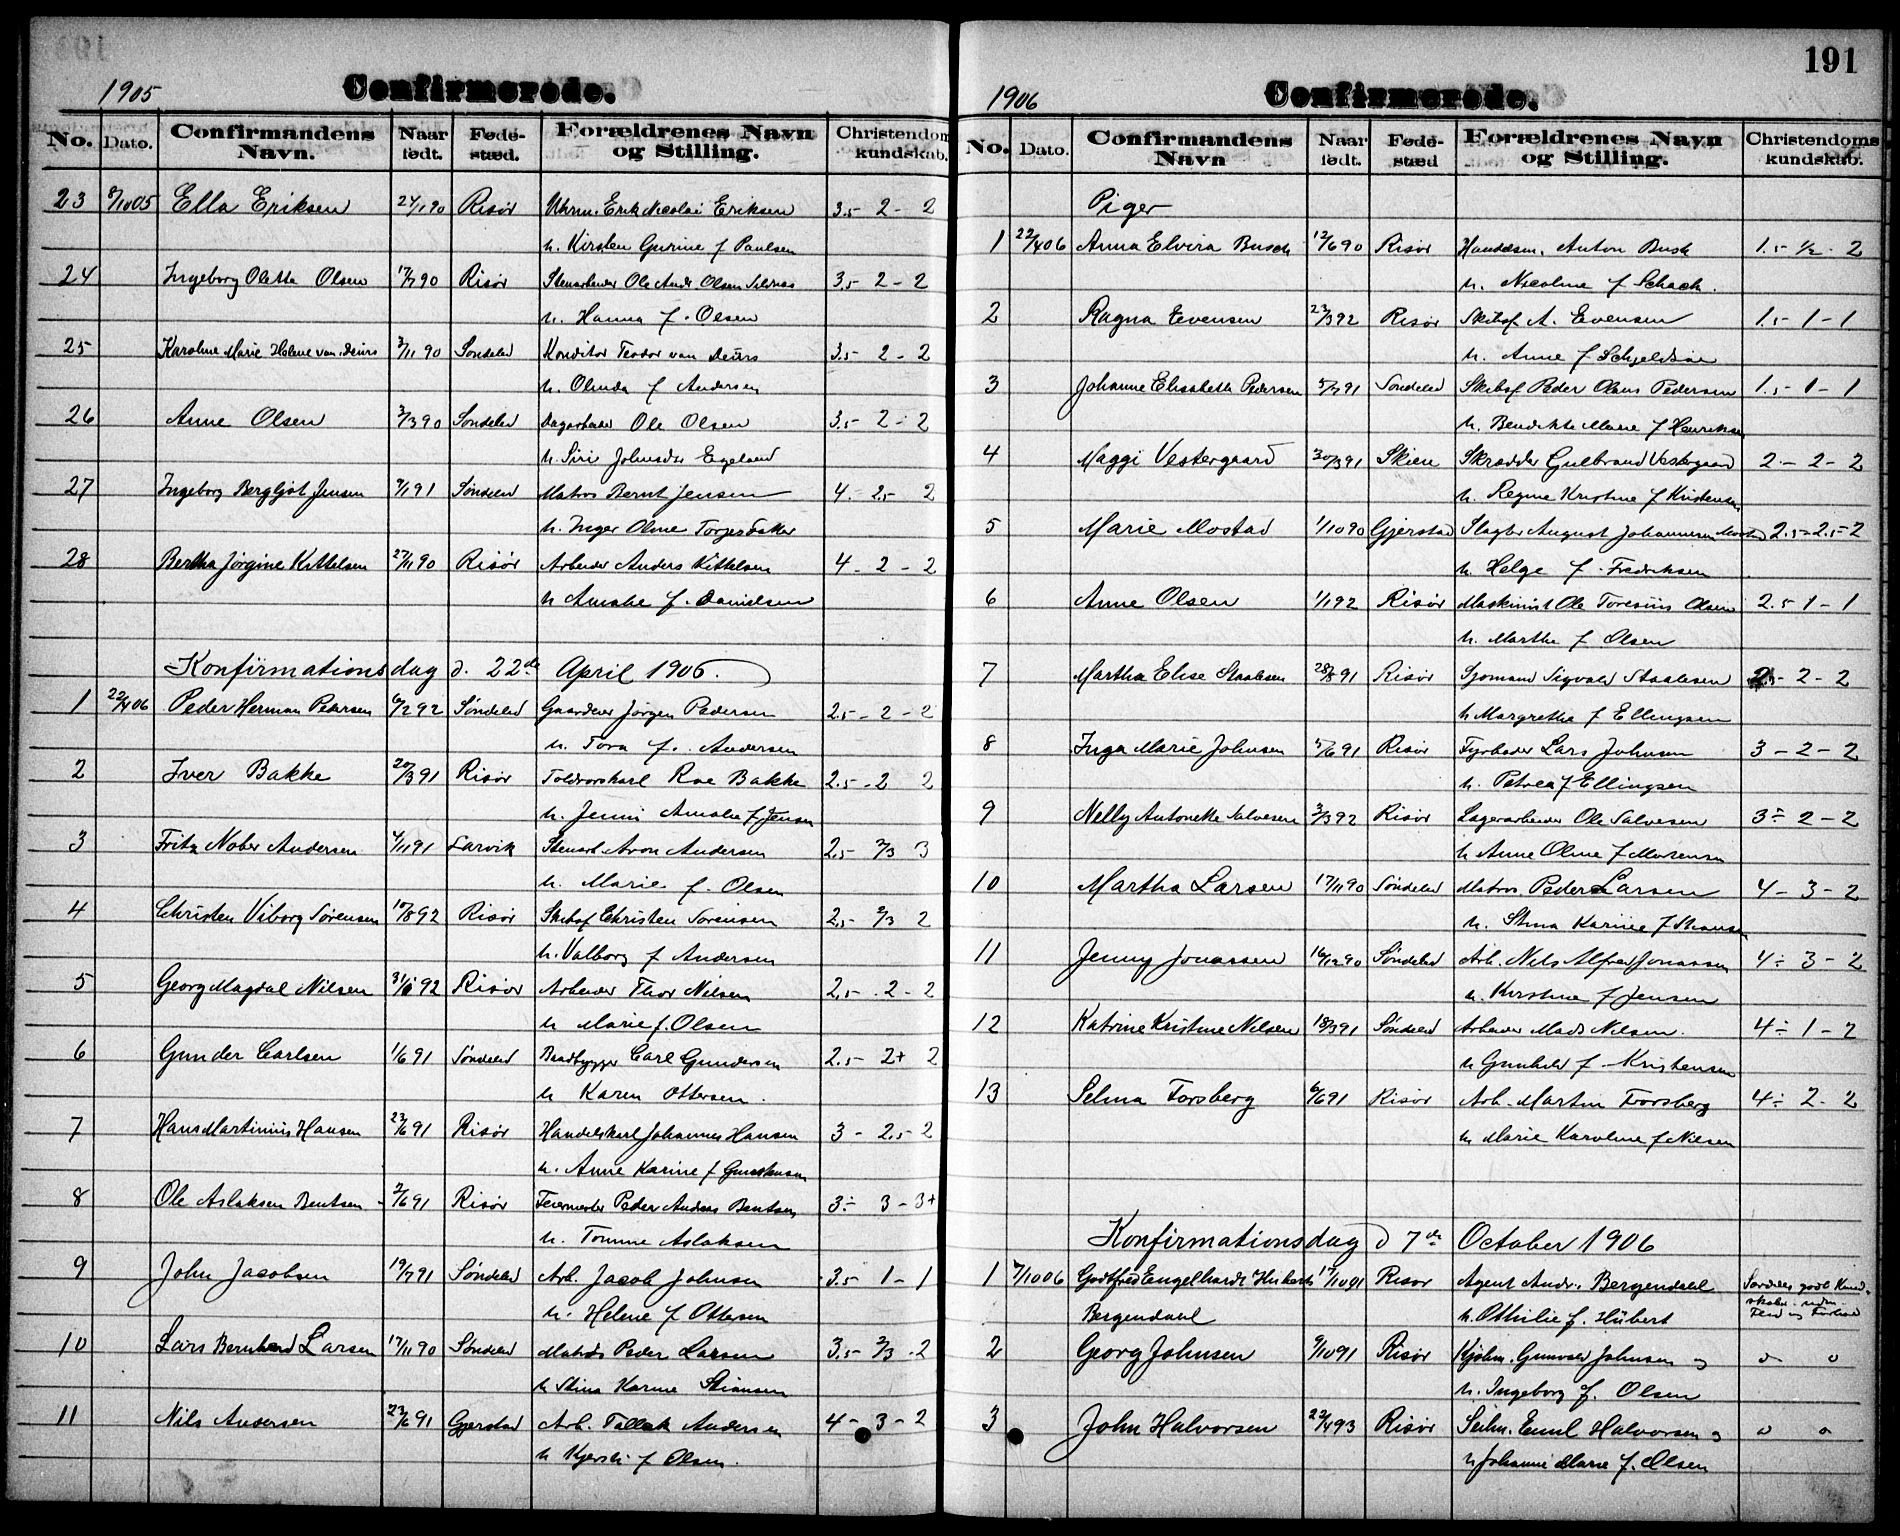 1905 Confirmerede.
No. Dato. Confirmandens Navn. Naar født. Fødested. Forældrenes Navn og Stilling. Christendomskundskab.
23 8/10 05 Ella Eriksen 24/1 90 Risør Uhrm. Erik Nicolai Eriksen 3.5 2 - 2
h. Kirsten Gurine f Paulsen
24 Ingeborg Oletta Olsen 17/7 90 Risør Stenarbeider Ole Andr. Olsen 3.5 2 - 2
h. Hanna f. Olsen
25 Karoline Marie Helene van Deurs 3/11 90 Søndeled Konditor Teodor van Deurs 3.5 - 2 - 2
h. Olinda f Andersen
26 Anne Olsen 3/3 90 Søndeled Dagarbeider Ole Olsen 3.5 - 2 - 2
h. Siri Johnsdtr Egeland
27 Ingeborg Bergljot Jensen 9/1 91 Søndeled Matros Bernt Jensen 4. - 2.5 - 2
h. Inger Oline Torjesdatter
28 Bertha Jørgine Kittelsen 27/11 90 Risør Arbeider Anders Kittelsen 4 - 2 - 2
h Amalie f. Danielsen
Konfirmationsdag d. 22de April 1906.
1 22/4 06 Peder Herman Pedersen 6/2 92 Søndeled Gaardeier Jørgen Pedersen 2.5 - 2 - 2
h. Tora f. Andersen
2 Iver Bakke 20/3 91 Risør Toldvorskarl Roe Bakke 2.5 - 2 2
h. Jenni Amalie f Jensen
3 Fritz Nober Andersen 4/11 91 Larvik Stenarb. Aron Andersen 2.5 - 2/3 3
h. Marie f. Olsen
4 Christen Viborg Sørensen 10/8 92 Risør Skibsf Christen Sørensen 2.5 - 2/3 2
h. Valborg f Andersen
5 Georg Magdal Nilsen 31/1 92 Risør Arbeider Thor Nilsen 2.5 - 2 - 2
h Marie f. Olsen
6 Gunder Carlsen 1/6 91 Søndeled Baadbygger Carl Gundersen 2.5 - 2+ 2
h Karen Ottersen.
7 Hans Martinius Hansen 23/6 91 Risør Handelskarl Johannes Hansen 3 - 2.5 - 2
h. Anne Karine f
8 Ole Aslaksen Bentsen 2/6 91 Risør Feiermester Peder Anders Bentsen 3÷ 3 - 3+
h. Tomine Aslaksen
9 John Jacobsen 19/7 91 Søndeled Arb. Jacob Johnsen 3.5 1 - 1
h. Helene f Ottersen
10 Lars Bernhard Larsen 17/11 90 Søndeled Matros Peder Larsen 3.5 - 2/3 - 2
h Stina Karine
11 Nils Andersen 23/6 91 Gjerstad Arb. Tallak Andersen 4 - 3 - 2
h Kjersti f Olsen.
191
1906 Confirmerede.
No. Dato. Confirmandens Navn Naar født. Fødested Forældrenes Navn og Stilling. Christendomskundskab.
Piger
1 22/4 06 Anna Elvira Busch 12/6 90 Risør Handelsm. Anton Busch 1.5 - 1/2 - 2
h. Nicoline f Schack.
2 Ragna Evensen 23/3 92 Risør Skibsf A. Evensen 1.5 - 1 - 1
h. Anne f
3 Johanne Elisabeth Pedersen 5/7 91 Søndeled Skibsf Peder Olaus Pedersen 1.5 - 1 - 1
h. Bendikte Marie f Henriksen
4 Maggi Vestergaard 30/3 91 Skien Skrædder Gulbrand Vestergaard 2. - 2 - 2
h. Regine Kristine f Kristensen
5 Marie Mostad 1/10 90 Gjerstad Slagter August Johannesen Mostad 2.5 - 2.5 - 2
h. Helge f. Fredriksen
6 Anne Olsen 1/1 92 Risør Maskinist Ole Toresius Olsen 2.5 1 - 1
h. Marthe f Olsen
7 Martha Elise Staalesen 28/8 91 Risør Sjømand Sigvald Staalesen 2.5 - 2 - 2
h Margrethe f Ellingsen
8 Inga Marie Johnsen 5/6 91 Risør Fyrbøder Lars Johnsen 3 - 2 - 2
h. Petrea f Ellingsen
9 Nelly Antonette Salvesen 3/3 92 Risør Lagerarbeider Ole Salvesen 3÷ 2 - 2
h Anne Oline f
10 Martha Larsen 17/11 90 Søndeled Matros Peder Larsen 4 - 3 - 2
h. Stina Karine f
11 Jenny Jonassen 16/12 90 Søndeled Arb. Nils Alfred Jonassen 4÷ 3 - 2
h. Kirstine f Jensen
12 Katrine Kristine Nilsen 18/3 91 Søndeled Arbeider Mads Nilsen. 4÷ 1 - 2
h Gunhild f Kristensen
13 Selma Forsberg 6/6 91 Risør Arb. Martin Forsberg 4÷ 2 - 2
h Marie Karoline f Nilsen
Konfirmationsdag d 7de October 1906
1 7/10 06 Godtfred Engelhardt Hüberts 17/10 91 Risør Agent Andr. Bergendahl Særdeles godt Kund-
Bergendahl h. Othilie f. Hübert skaber
2 Georg Johnsen 9/10 91 Risør Kjøbm. Gunvald Johnsen og o o
h. Ingeborg f. Olsen
3 John Halvorsen 22/4 93 Risør Seilm. Emil Halvorsen og o o
h Johanne Marie f. Olsen